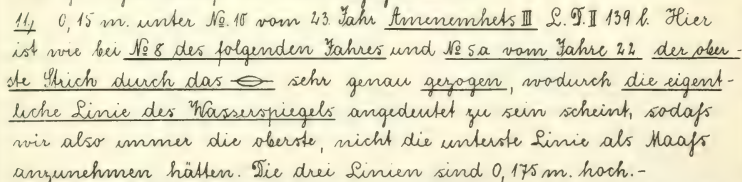 11, 0,15 m. unter №. 10 vom 23. Jahr Amenemhets III L. D. II 139 l. Hier
ist wie bei № 8 des folgenden Jahres und № 5a vom Jahre 22 der ober-
ste Strich durch das 𓂋 sehr genau gezogen, wodurch die eigent-
liche Linie des Wasserspiegels angedeutet zu sein scheint, sodaſs
wir also immer die oberste, nicht die unterste Linie als Maaſs
anzunehmen hätten. Die drei Linien sind 0,175 m. hoch.-